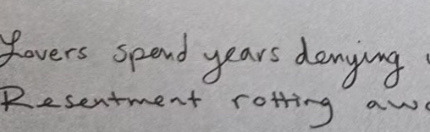 Lovers spend years denying
Resentment rotting